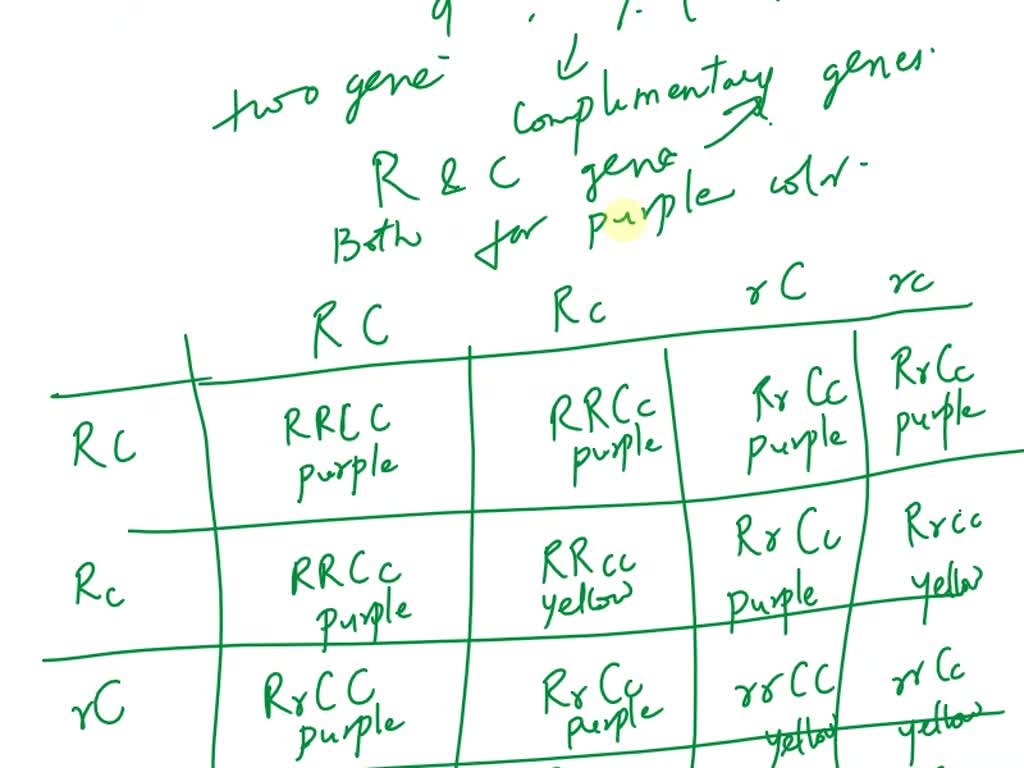 two gene
complimentary genes.
R & C gene
Both for purple color.
RC Rc rC rc
RC RRCC purple RRCc purple RrCc purple RrCc purple
Rc RRCc purple RRcc yellow RrCc purple Rrcc yellow
rC RrCC purple RrCc purple rrCC yellow rrCc yellow